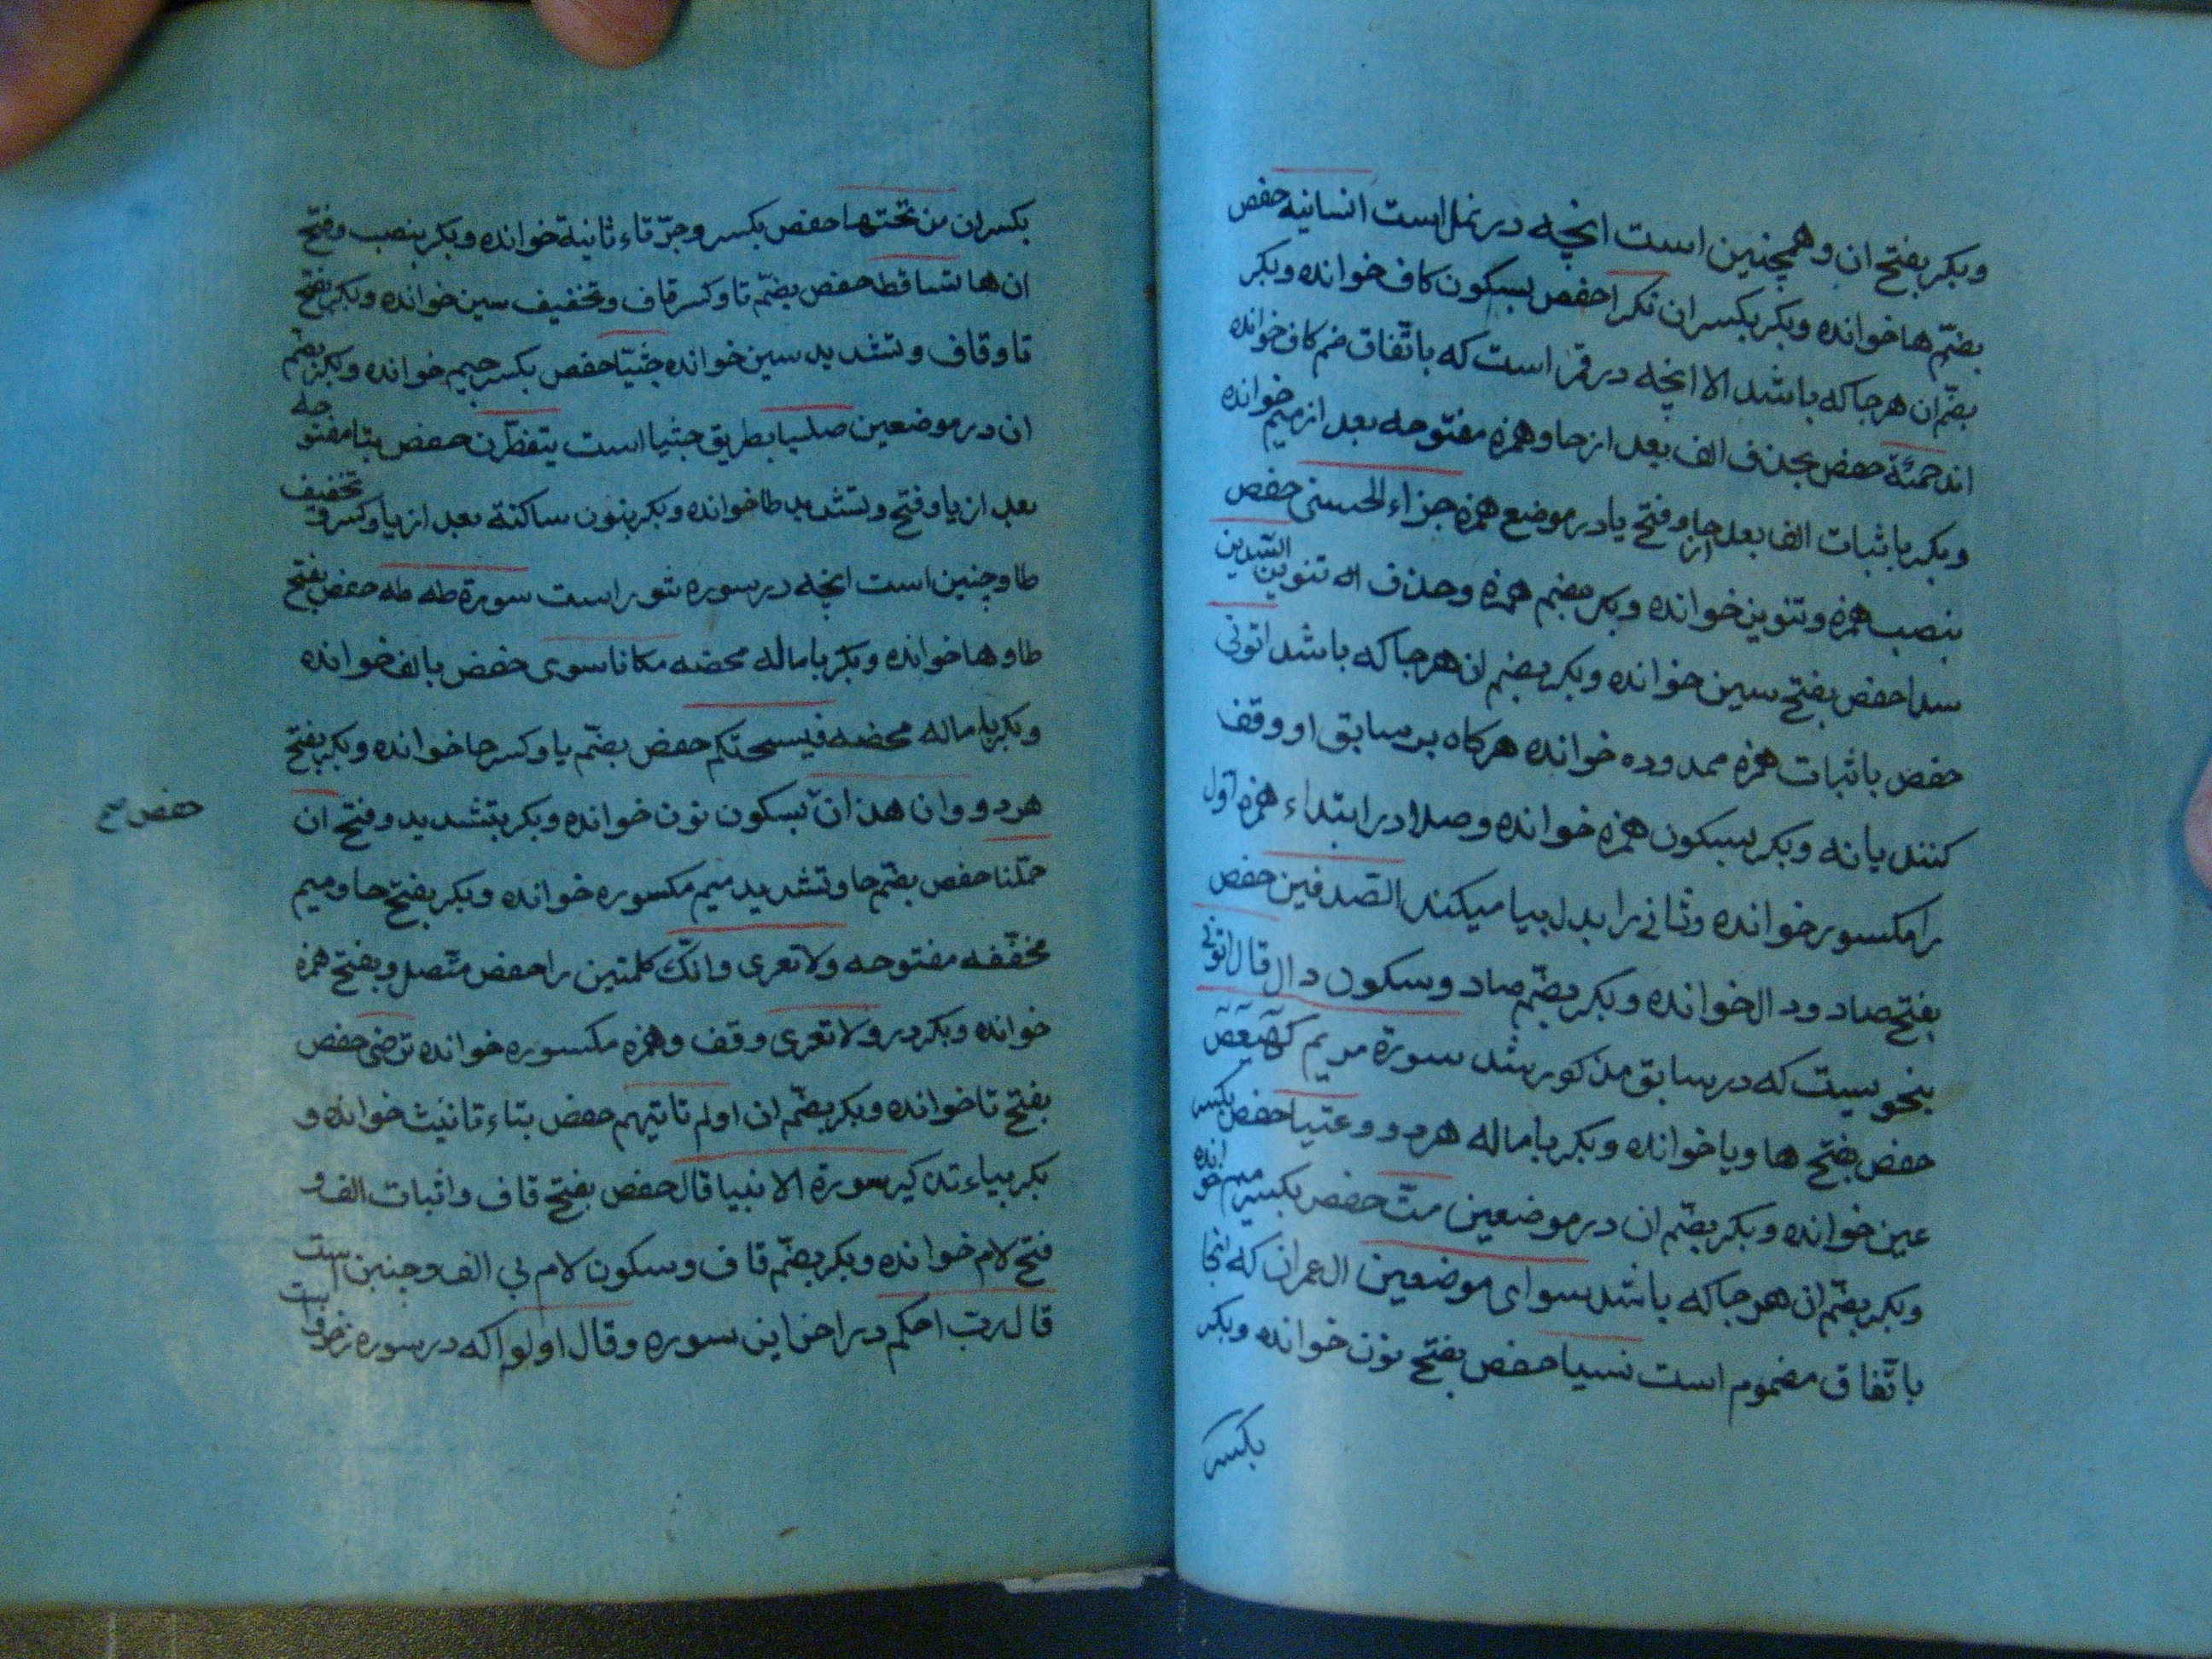 وبكر بفتح ان وهمچنین است انچه در نمل است انسانیه حفص
بضمّ ها خوانده وبكر بكسر ان نكرا حفص بسكون كاف خوانده وبكر
بضمّ ان هرجا كه باشد الا انچه در قمر است كه باتّفاق ضم كاف خوانده
اند حمئة حفص بحذف الف بعد از حا وهمزه مفتوحه بعد از میم خوانده
وبكر باثبات الف بعد از حا وفتح یا در موضع همزه جزاء الحسنی حفص
بنصب همزه وتنوین خوانده وبكر بضم همزه وحذف تنوین السّدین
سدا حفص بفتح سین خوانده وبكر بضم ان هرجا كه باشد اتونی
حفص باثبات همزه ممدوده خوانده هركاه بر سابق او وقف
كنند یا نه وبكر بسكون همزه خوانده وصلا در ابتداء همزه اول
را مكسور خوانده وثانی را بدل بیا میكند الصّدفین حفص
بفتح صاد ودال خوانده وبكر بضمّ صاد وسكون دال قال اتونی
بنحویست كه در سابق مذكور شد سورة مریم كهیعص
حفص بفتح ها ویا خوانده وبكر باماله هردو وعتیا حفص بكسر
عین خوانده وبكر بضمّ ان در موضعین متّ حفص بكسر میم خوانده
وبكر بضمّ ان هرجا كه باشد سوای موضعین ال عمران كه انجا
باتّفاق مضموم است نسیا حفص بفتح نون خوانده وبكر
بكسر
بكسر ان من تحتها حفص بكسر وجرّ تاء ثانیة خوانده وبكر بنصب وفتح
ان ها تساقط حفص بضمّ تا وكسر قاف وتخفیف سین خوانده وبكر بفتح
تا وقاف وتشدید سین خوانده جثیّا حفص بكسر جیم خوانده وبكر بضم
ان در موضعین صلیا بطریق جثیا است یتفطّرن حفص بتا مفتوحه
بعد از یا وفتح وتشدید طا خوانده وبكر بنون ساكنة بعد از یا وكسر وتخفیف
طا وچنین است انچه در سوره شورا است سورة طه طه حفص بفتح
طا وها خوانده وبكر باماله محضه مكانا سوی حفص بالف خوانده
وبكر باماله محضه فیسحتكم حفص بضمّ یا وكسر حا خوانده وبكر بفتح
هردو وان هذان بسكون نون خوانده وبكر بتشدید وفتح ان
حفص صح
حمّلنا حفص بضمّ حا وتشدید میم مكسوره خوانده وبكر بفتح حا ومیم
مخفّفه مفتوحه ولا تعری وانّك كلمتین را حفص متّصل وبفتح همزه
خوانده وبكر در ولا تعری وقف وهمزه مكسوره خوانده ترضی حفص
بفتح تا خوانده وبكر بضمّ ان اولم تاتیهم حفص بتاء تانیث خوانده و
بكر بیاء تذكیر سورة الانبیا قال حفص بفتح قاف واثبات الف و
فتح لام خوانده وبكر بضمّ قاف وسكون لام بی الف وچنین است
قال رب احكم در اخر این سوره وقال اولو اكه در سوره زخرف است